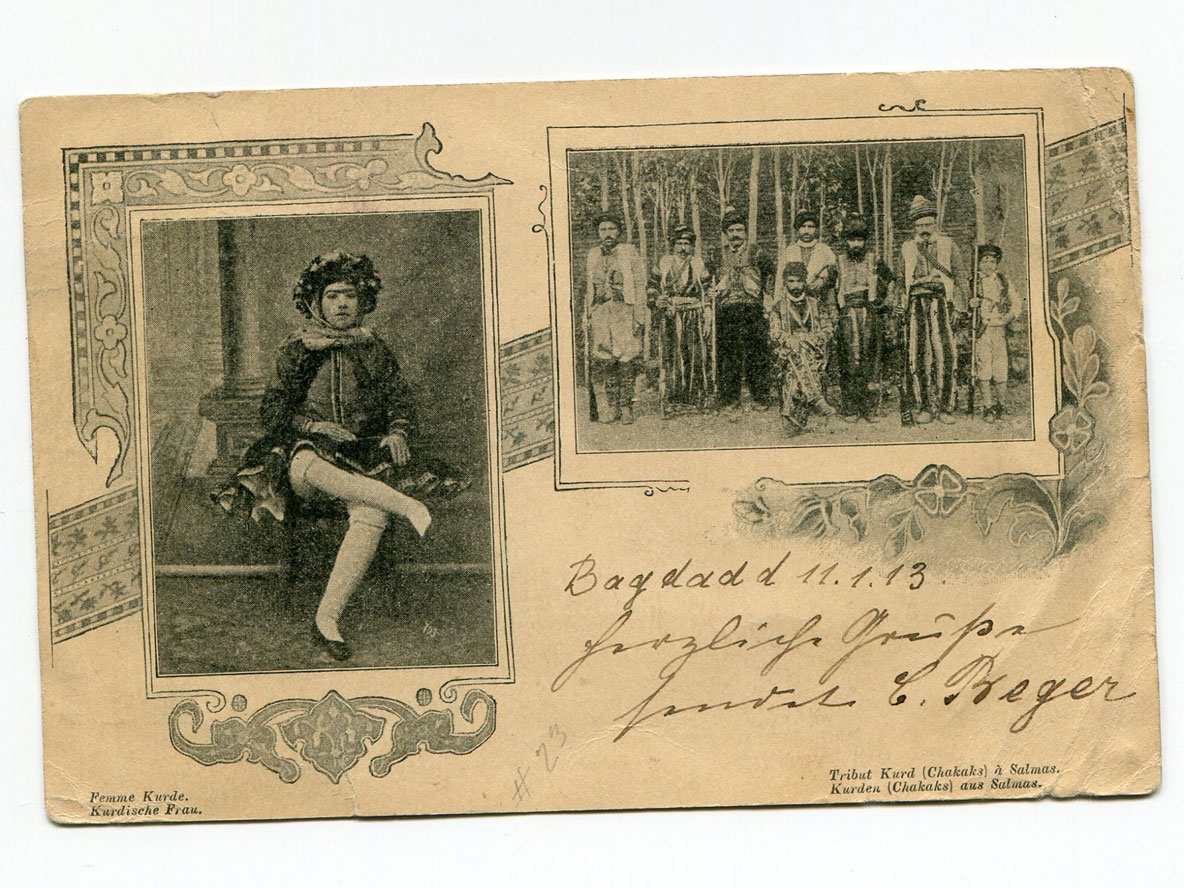 Bagdadd 11.1.13.
herzliche Grüße
sendet C. Beger
# 23
Femme Kurde.
Kurdische Frau.
Tribut Kurd (Chakaks) à Salmas.
Kurden (Chakaks) aus Salmas.